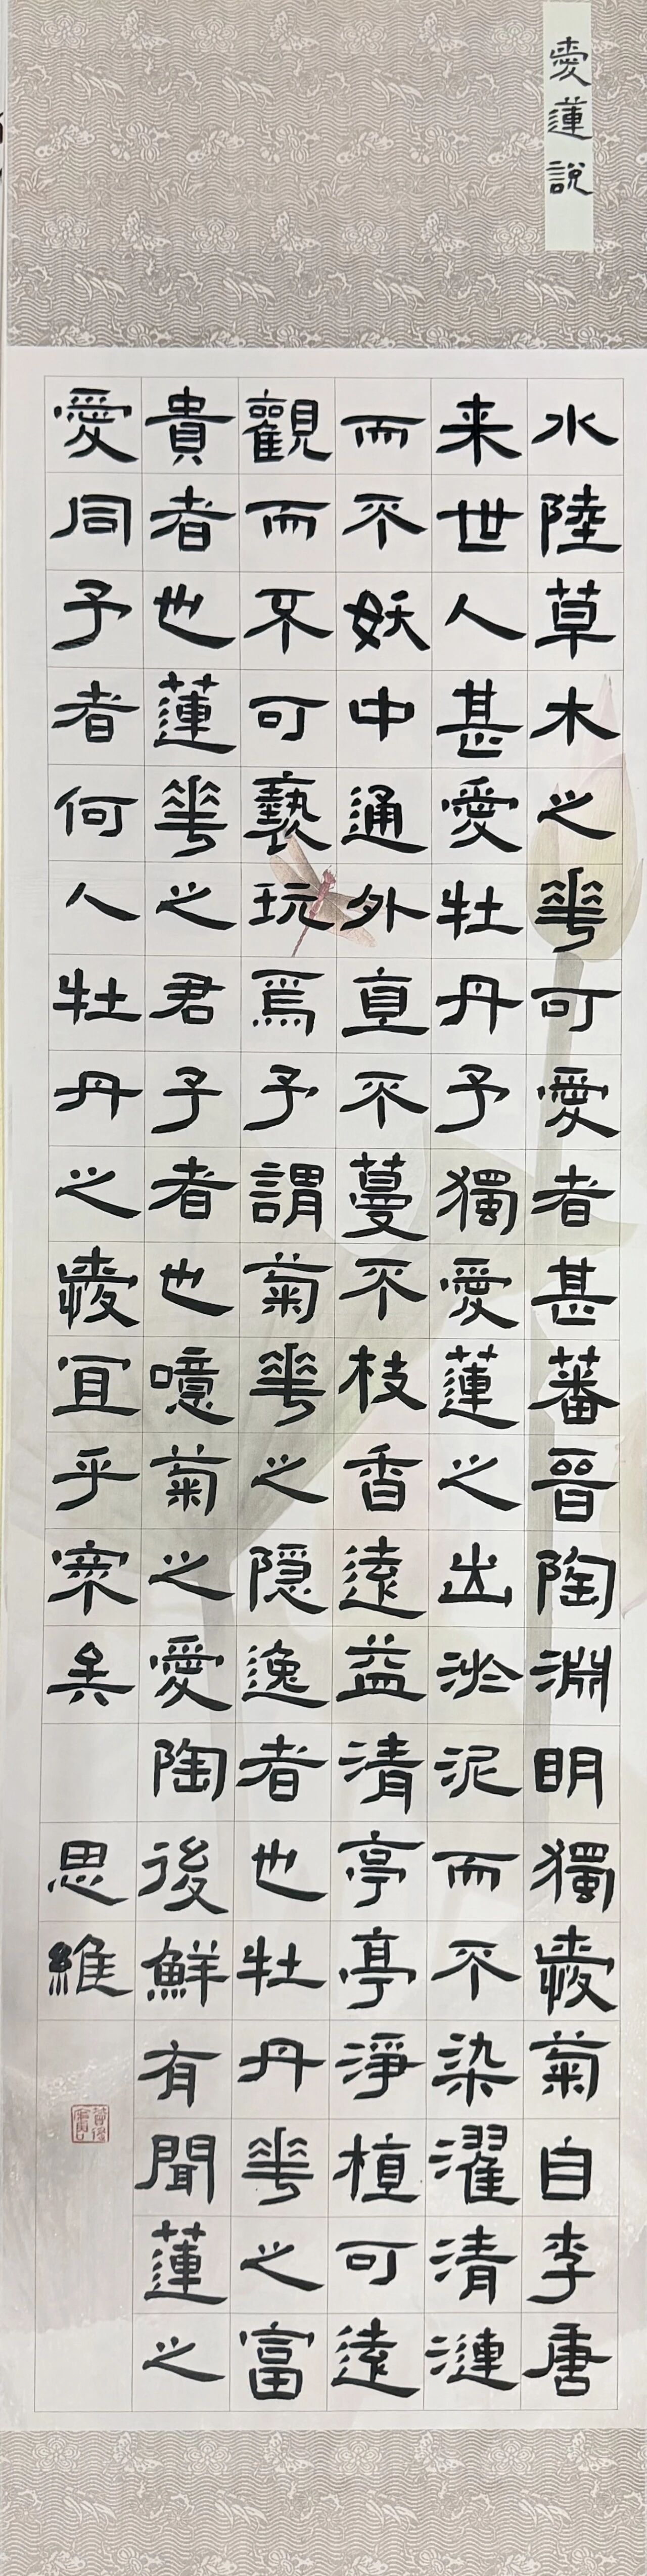 愛蓮說
水陸草木之華可愛者甚蕃晉陶淵明獨愛菊自李唐
来世人甚愛牡丹予獨愛蓮之出淤泥而不染濯清漣
而不妖中通外直不蔓不枝香遠益清亭亭淨植可遠
觀而不可褻玩焉予謂菊華之隐逸者也牡丹華之富
貴者也蓮華之君子者也噫菊之愛陶後鮮有聞蓮之
愛同予者何人牡丹之愛宜乎衆矣 思維